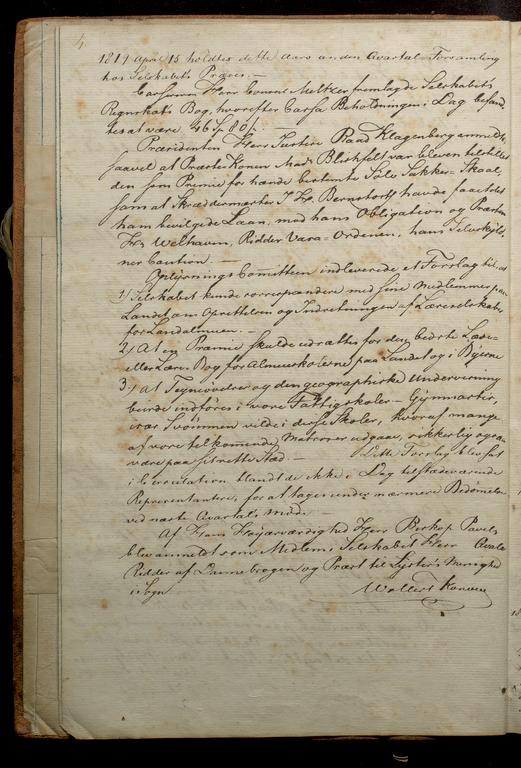 4.
1819 April 15 holdtes dette Aars anden Qvartal-Forsamling
hos Selskabets Præses. —
Casserer Herr Consul Meltzer fremlagde Selskabets
Regnskabs Bog, hvorefter Cassa Beholdningen i Dag befand-
tes at være
Præsidenten Herr Justice Raad Klagenberg anmeldte,
saavel at Præste Konen Mad. Blichfelt var bleven tilstillet
den som Præmie for hende bestemte Sølv Sukker-Skaal,
som at Skræddermester J. Fr. Bernstorf havde faaet det
ham bevilgede Laan, mod hans Obligation og Præsten
Hr Welhaven, Ridder Vasa-Ordenen, hans Selvskyld-
ner Caution. —
Oplysnings Comitteen indleverede et Forslag til: at
1) Selskabet kunde correspondere med sine Medlemmer paa
Landet om Oprettelsen og Indretningen af Læseselskaber
for Landalmuen. —
2) At en Præmie skulde udsættes for den bedste Læse-
eller Lære Bog for Almueskolerne paa Landet og i Byerne
3) at Tegneøvelser og den geographiske Underviisning
burde indføres i vore Fattigskoler — Gymnastik,
især Svømmen vilde i disse Skoler, hvoraf mange
af vore tilkommende Matroser udgaae, sikkerlig ogsaa
være paa sit rette Sted — Dette Forslag blev sat
i Circulation blandt de ikke i Dag tilstædeværende
Repræsentantere, for at tages under nærmere Bedømmelse
ved næste Qvartals møde —
Af Hans Høyærværdighed Herr Biskop Pavels
blev anmeldt som Medlem i Selskabet Herr
Ridder af Dannebrogen og Præst til Lyster's Menighed
i Sogn
Wollert Konow